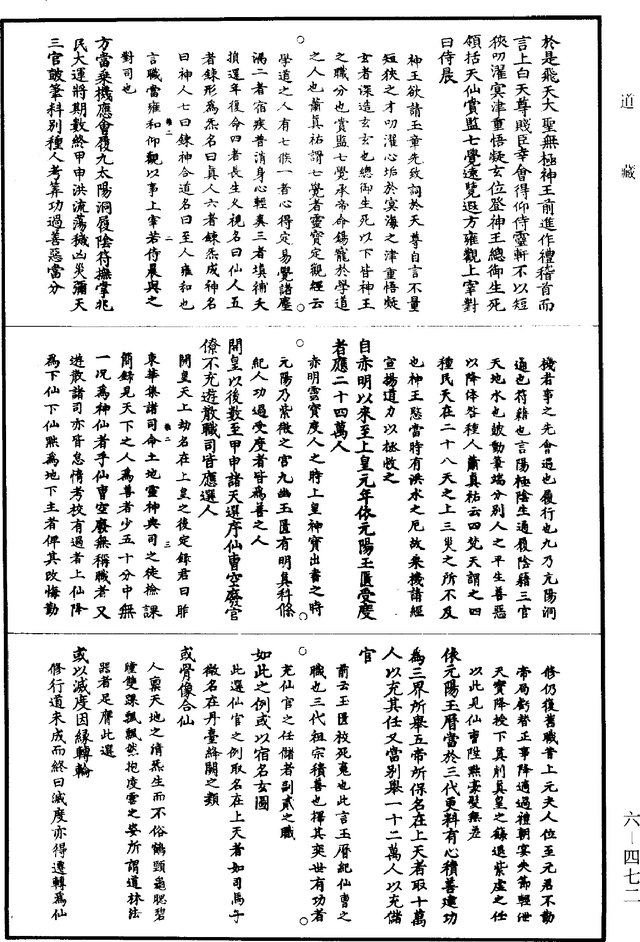 道藏
於是飛天大聖無極神王前進作禮稽首而
言上白天尊賤臣幸會得仰侍靈軒不以短
狹叨濯寘津重悟凝玄位登神王總御生死
領括天仙賞監七覺遠覽遐方雍觀上宰對
曰侍晨
神王欲請玉章先致詞於天尊自言不量
短狹之才叨濯心垢於寘海之津重悟凝
玄者深造玄玄也總御生死以下皆神王
之職分也賞監七覺承帝命錫寵於學道
之人也蕭真祐謂七覺者靈寶定觀經云
學道之人有七候一者心得定易覺諸塵
漏二者宿疾普消身心輕爽三者填補夭
損還年復命四者長生久視名曰仙人五
者鍊形為炁名曰真人六者鍊炁成神名
曰神人七曰鍊神合道名曰至人雍和也
言職當雍和仰觀以事上宰若侍晨與之
對司也
方當乘機應會履九太陽洞履陰符撫掌兆
民大運將期數終甲申洪流蕩穢凶災彌天
三官鼓筆料別種人考筭功過善惡當分
機者事之先會遇也履行也九乃亢陽洞
通也符籍也言陽極陰生通履陰籍三官
天地水也鼓動筆端分別人之平生善惡
以降俸啓種人蕭真祐云四梵天謂之四
種民天在二十八天之上三災之所不及
也神王愍當時有洪水之厄故乘機請經
宣揚道力以拯收之
自赤明以來至上皇元年依元陽玉匱受度
者應二十四萬人
赤明雲寶度人之時上皇神寶出書之時
元陽乃紫微之宮九幽玉匱有明真科條
紀人功過受度者皆為善之人
開皇以後數至甲申諸天選序仙曹空廢官
僚不充遊散職司皆應選人
開皇天上劫名在上皇之後定錄君曰昨
東華集諸司命土地靈神典司之徒檢課
簡錄見天下之人為善者少五十分中無
一況為神仙者乎仙曹空廢無稱職者又
遊散諸司亦皆怠惰考校有過者上仙降
為下仙下仙黜為地下主者俾其改悔勤
修仍復舊職昔上元夫人位至元君不勤
帝局虧替正事降適過禮朝宴失節輕泄
天寶降授下真削真皇之錄退紫虛之任
以此見仙曹陞黜豪髮無差
依元陽玉曆當於三代更料有心積善建功
為三界所舉五帝所保名在上天者取十萬
人以充其任又當別舉一十二萬人以充儲
官
前云玉匱校死魂也此言玉曆紀仙曹之
職也三代祖宗積善也擇其奕世有功者
充仙官之任儲者副貳之職
如此之例或以宿名玄圖
此選仙官之例取名在上天者如司馬子
微名在丹臺絳闕之類
或骨像合仙
人稟天地之清炁生而不俗鶴頸龜腮碧
瞳雙踝飄飄然抱凌雲之姿所謂道林法
器者足膺此選
或以滅度因緣轉輪
修行道未成而終曰滅度亦得遷轉為仙
六—四七二